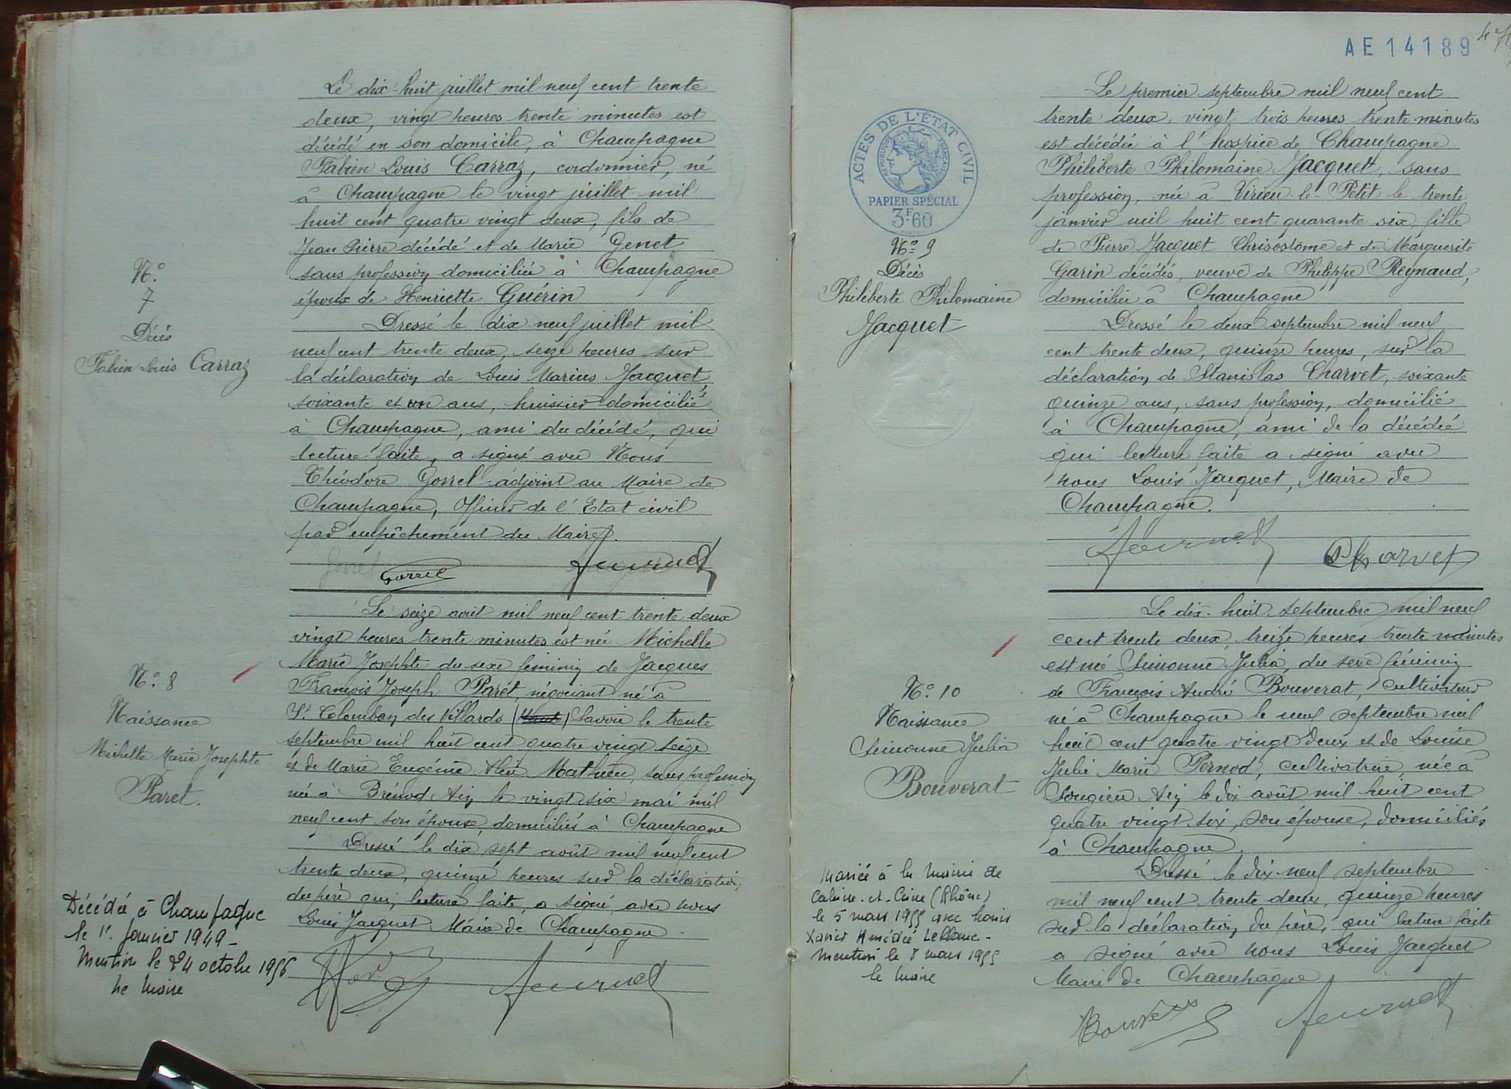 Le dix-huit juillet mil neuf cent trente
deux, vingt heures trente minutes est
décédé en son domicile, à Champagne
Fabien Louis Carraz, cordonnier, né
à Champagne le vingt juillet mil
huit cent quatre vingt deux, fils de
Jean Pierre décédé et de Marie Genet
sans profession domiciliée à Champagne
époux de Henriette Guérin
Dressé le dix neuf juillet mil
neuf cent trente deux, seize heures sur
la déclaration de Louis Marius Jacquet
soixante et un ans, huissier domicilié
à Champagne, ami du décédé, qui
lecture faite, a signé avec Nous
Théodore Gorrel adjoint au Maire de
Champagne, Officier de l'Etat civil
par empêchement du Maire.
Gorrel
N°
7
Décès
Fabien Louis Carraz
Le seize août mil neuf cent trente deux
vingt heures trente minutes est née Michelle
Marie Josephte du sexe féminin de Jacques
François Joseph Paret, négociant né à
St Colomban des Villards (Savoie le trente
septembre mil huit cent quatre vingt seize
et de Marie Eugénie Mathieu, sans profession
née à Brénod Ain le vingt six mai mil
neuf cent son épouse, domiciliés à Champagne
Dressé le dix sept août mil neuf cent
trente deux, quinze heures sur la déclaration
du père qui, lecture faite, a signé avec nous
Louis Jacquet Maire de Champagne
N° 8
Naissance
Michelle Marie Josephte
Paret.
Décédée à Champagne
le 1er janvier 1949 -
Mention le 24 octobre 1956
Le Maire
AE14189
ACTES DE L'ÉTAT CIVIL
PAPIER SPÉCIAL
3F60
N° 9
Décès
Philiberte Philomaine
Jacquet
Le premier septembre mil neuf cent
trente deux, vingt trois heures trente minutes
est décédée à l'hospice de Champagne
Philiberte Philomaine Jacquet, sans
profession, née à Virieu-le-Petit le trente
janvier mil huit cent quarante six, fille
de Pierre Jacquet Chrisostôme et de Marguerite
Garin décédés, veuve de Philippe Reynaud,
domiciliée à Champagne
Dressé le deux septembre mil neuf
cent trente deux, quinze heures, sur la
déclaration de Stanislas Charvet, soixante
quinze ans, sans profession, domicilié
à Champagne, ami de la décédée
qui lecture faite a signé avec
nous Louis Jacquet, Maire de
Champagne.
Charvet
Le dix-huit septembre mil neuf
cent trente deux, treize heures trente minutes
est né Simonne Julia, du sexe féminin
de François André Bouverat, cultivateur
né à Champagne le neuf septembre mil
huit cent quatre vingt deux et de Louise
Julie Marie Pernod, cultivatrice née à
Songieu Ain le dix août mil huit cent
quatre vingt six, son épouse, domiciliés
à Champagne
Dressé le dix-neuf septembre
mil neuf cent trente deux, quinze heures
sur la déclaration du père, qui lecture faite
a signé avec nous Louis Jacquet
Maire de Champagne
N° 10
Naissance
Simonne Julia
Bouverat
Mariée à la mairie de
Caluire-et-Cuire (Rhône)
le 5 mars 1955 avec Louis
Xavier Amédée Leblanc -
Mention le 8 mars 1955
le Maire